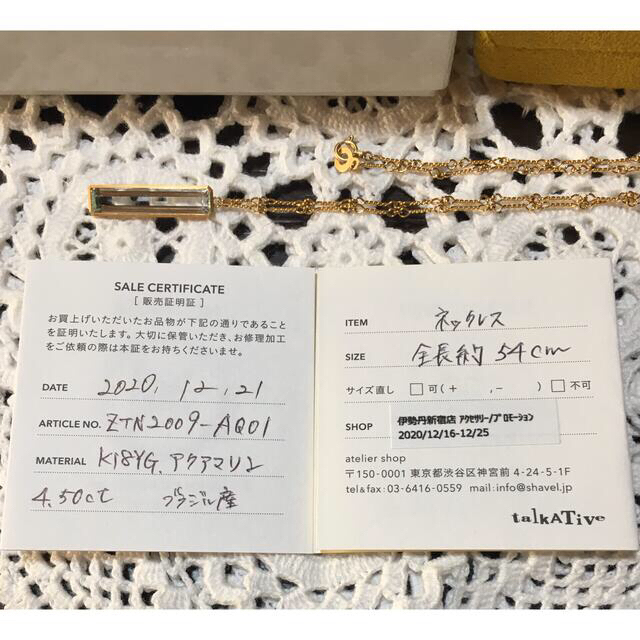 SALE CERTIFICATE
[ 販売証明証 ]
お買上げいただいたお品物が下記の通りであること
を証明いたします。大切に保管いただき、お修理加工
をご依頼の際は本証をお持ちくださいませ。
DATE 2020, 12, 21
ARTICLE NO. ZTN2009-AQ01
MATERIAL K18YG、アクアマリン
4.50ct ブラジル産
ITEM ネックレス
SIZE 全長約 54cm
サイズ直し □ 可 ( + , - ) □ 不可
SHOP 伊勢丹新宿店 アクセサリー/プロモーション
2020/12/16-12/25
atelier shop
〒150-0001 東京都渋谷区神宮前 4-24-5-1F
tel&fax:03-6416-0559 mail:info@shavel.jp
talkATive